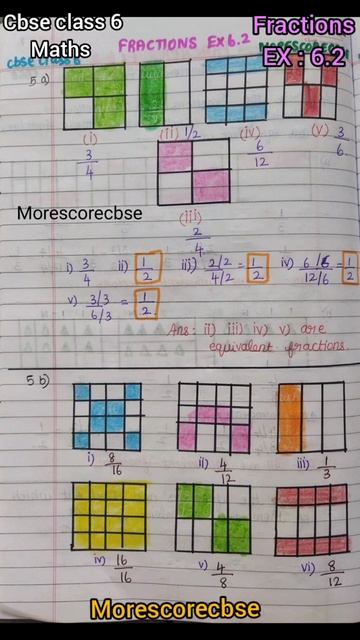 Cbse class 6
Maths
Fractions
EX : 6.2
FRACTIONS EX 6.2
cbse class 6
5.a)
(i)
3/4
(ii) 1/2
(iv)
6/12
(v) 3/6
Morescorecbse
(iii)
2/4
i) 3/4 ii) 1/2 iii) 2/2 / 4/2 = 1/2 iv) 6/6 / 12/6 = 1/2
v) 3/3 / 6/3 = 1/2
Ans: ii) iii) iv) v) are
equivalent fractions.
5 b)
i) 8/16 ii) 4/12 iii) 1/3
iv) 16/16 v) 4/8 vi) 8/12
Morescorecbse